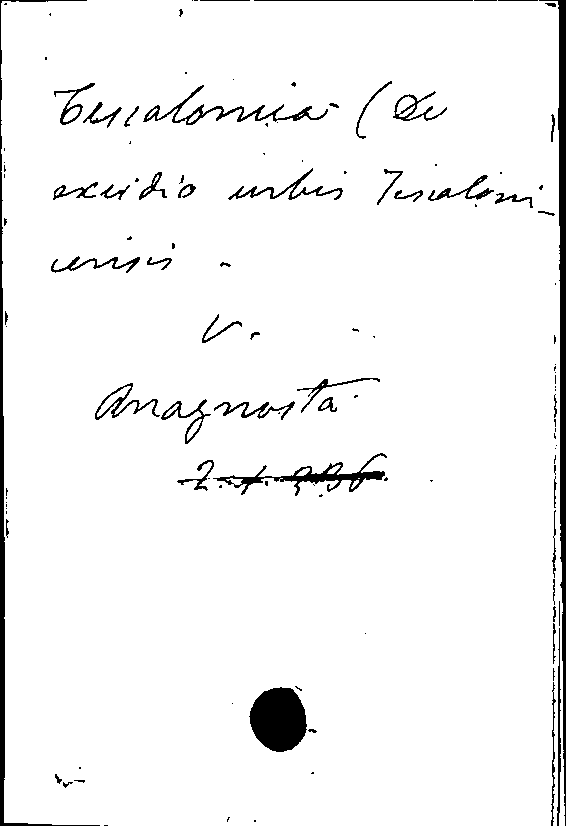 Tessalonica (De
excidio urbis Tessaloni-
censis -
V.
Anagnosta